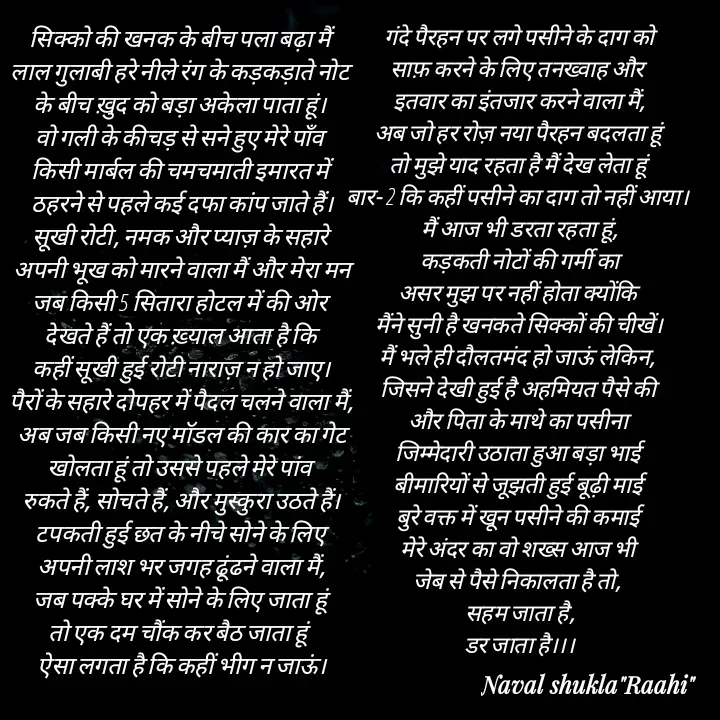 सिक्को की खनक के बीच पला बढ़ा मैं
लाल गुलाबी हरे नीले रंग के कड़कड़ाते नोट
के बीच ख़ुद को बड़ा अकेला पाता हूं।
वो गली के कीचड़ से सने हुए मेरे पाँव
किसी मार्बल की चमचमाती इमारत में
ठहरने से पहले कई दफा कांप जाते हैं।
सूखी रोटी, नमक और प्याज़ के सहारे
अपनी भूख को मारने वाला मैं और मेरा मन
जब किसी 5 सितारा होटल में की ओर
देखते हैं तो एक ख़्याल आता है कि
कहीं सूखी हुई रोटी नाराज़ न हो जाए।
पैरों के सहारे दोपहर में पैदल चलने वाला मैं,
अब जब किसी नए मॉडल की कार का गेट
खोलता हूं तो उससे पहले मेरे पांव
रुकते हैं, सोचते हैं, और मुस्कुरा उठते हैं।
टपकती हुई छत के नीचे सोने के लिए
अपनी लाश भर जगह ढूंढने वाला मैं,
जब पक्के घर में सोने के लिए जाता हूं
तो एक दम चौंक कर बैठ जाता हूं
ऐसा लगता है कि कहीं भीग न जाऊं।
गंदे पैरहन पर लगे पसीने के दाग को
साफ़ करने के लिए तनख्वाह और
इतवार का इंतजार करने वाला मैं,
अब जो हर रोज़ नया पैरहन बदलता हूं
तो मुझे याद रहता है मैं देख लेता हूं
बार-2 कि कहीं पसीने का दाग तो नहीं आया।
मैं आज भी डरता रहता हूं,
कड़कती नोटों की गर्मी का
असर मुझ पर नहीं होता क्योंकि
मैंने सुनी है खनकते सिक्कों की चीखें।
मैं भले ही दौलतमंद हो जाऊं लेकिन,
जिसने देखी हुई है अहमियत पैसे की
और पिता के माथे का पसीना
जिम्मेदारी उठाता हुआ बड़ा भाई
बीमारियों से जूझती हुई बूढ़ी माई
बुरे वक्त में खून पसीने की कमाई
मेरे अंदर का वो शख्स आज भी
जेब से पैसे निकालता है तो,
सहम जाता है,
डर जाता है।।।
Naval shukla"Raahi"